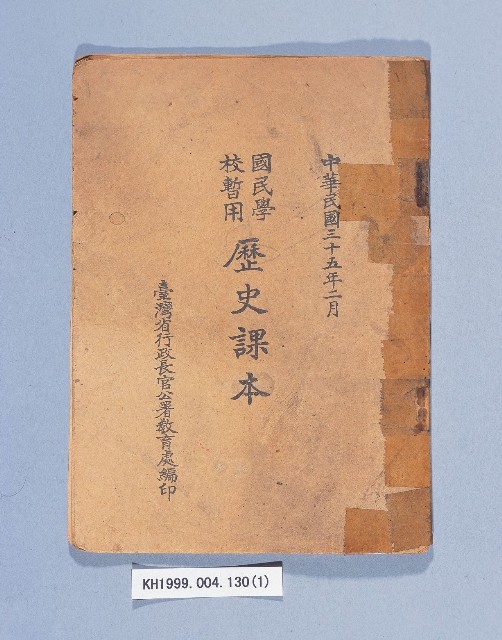 中華民國三十五年二月
國民學
校暫用
歷史課本
臺灣省行政長官公署教育處編印
KH1999.004.130(1)